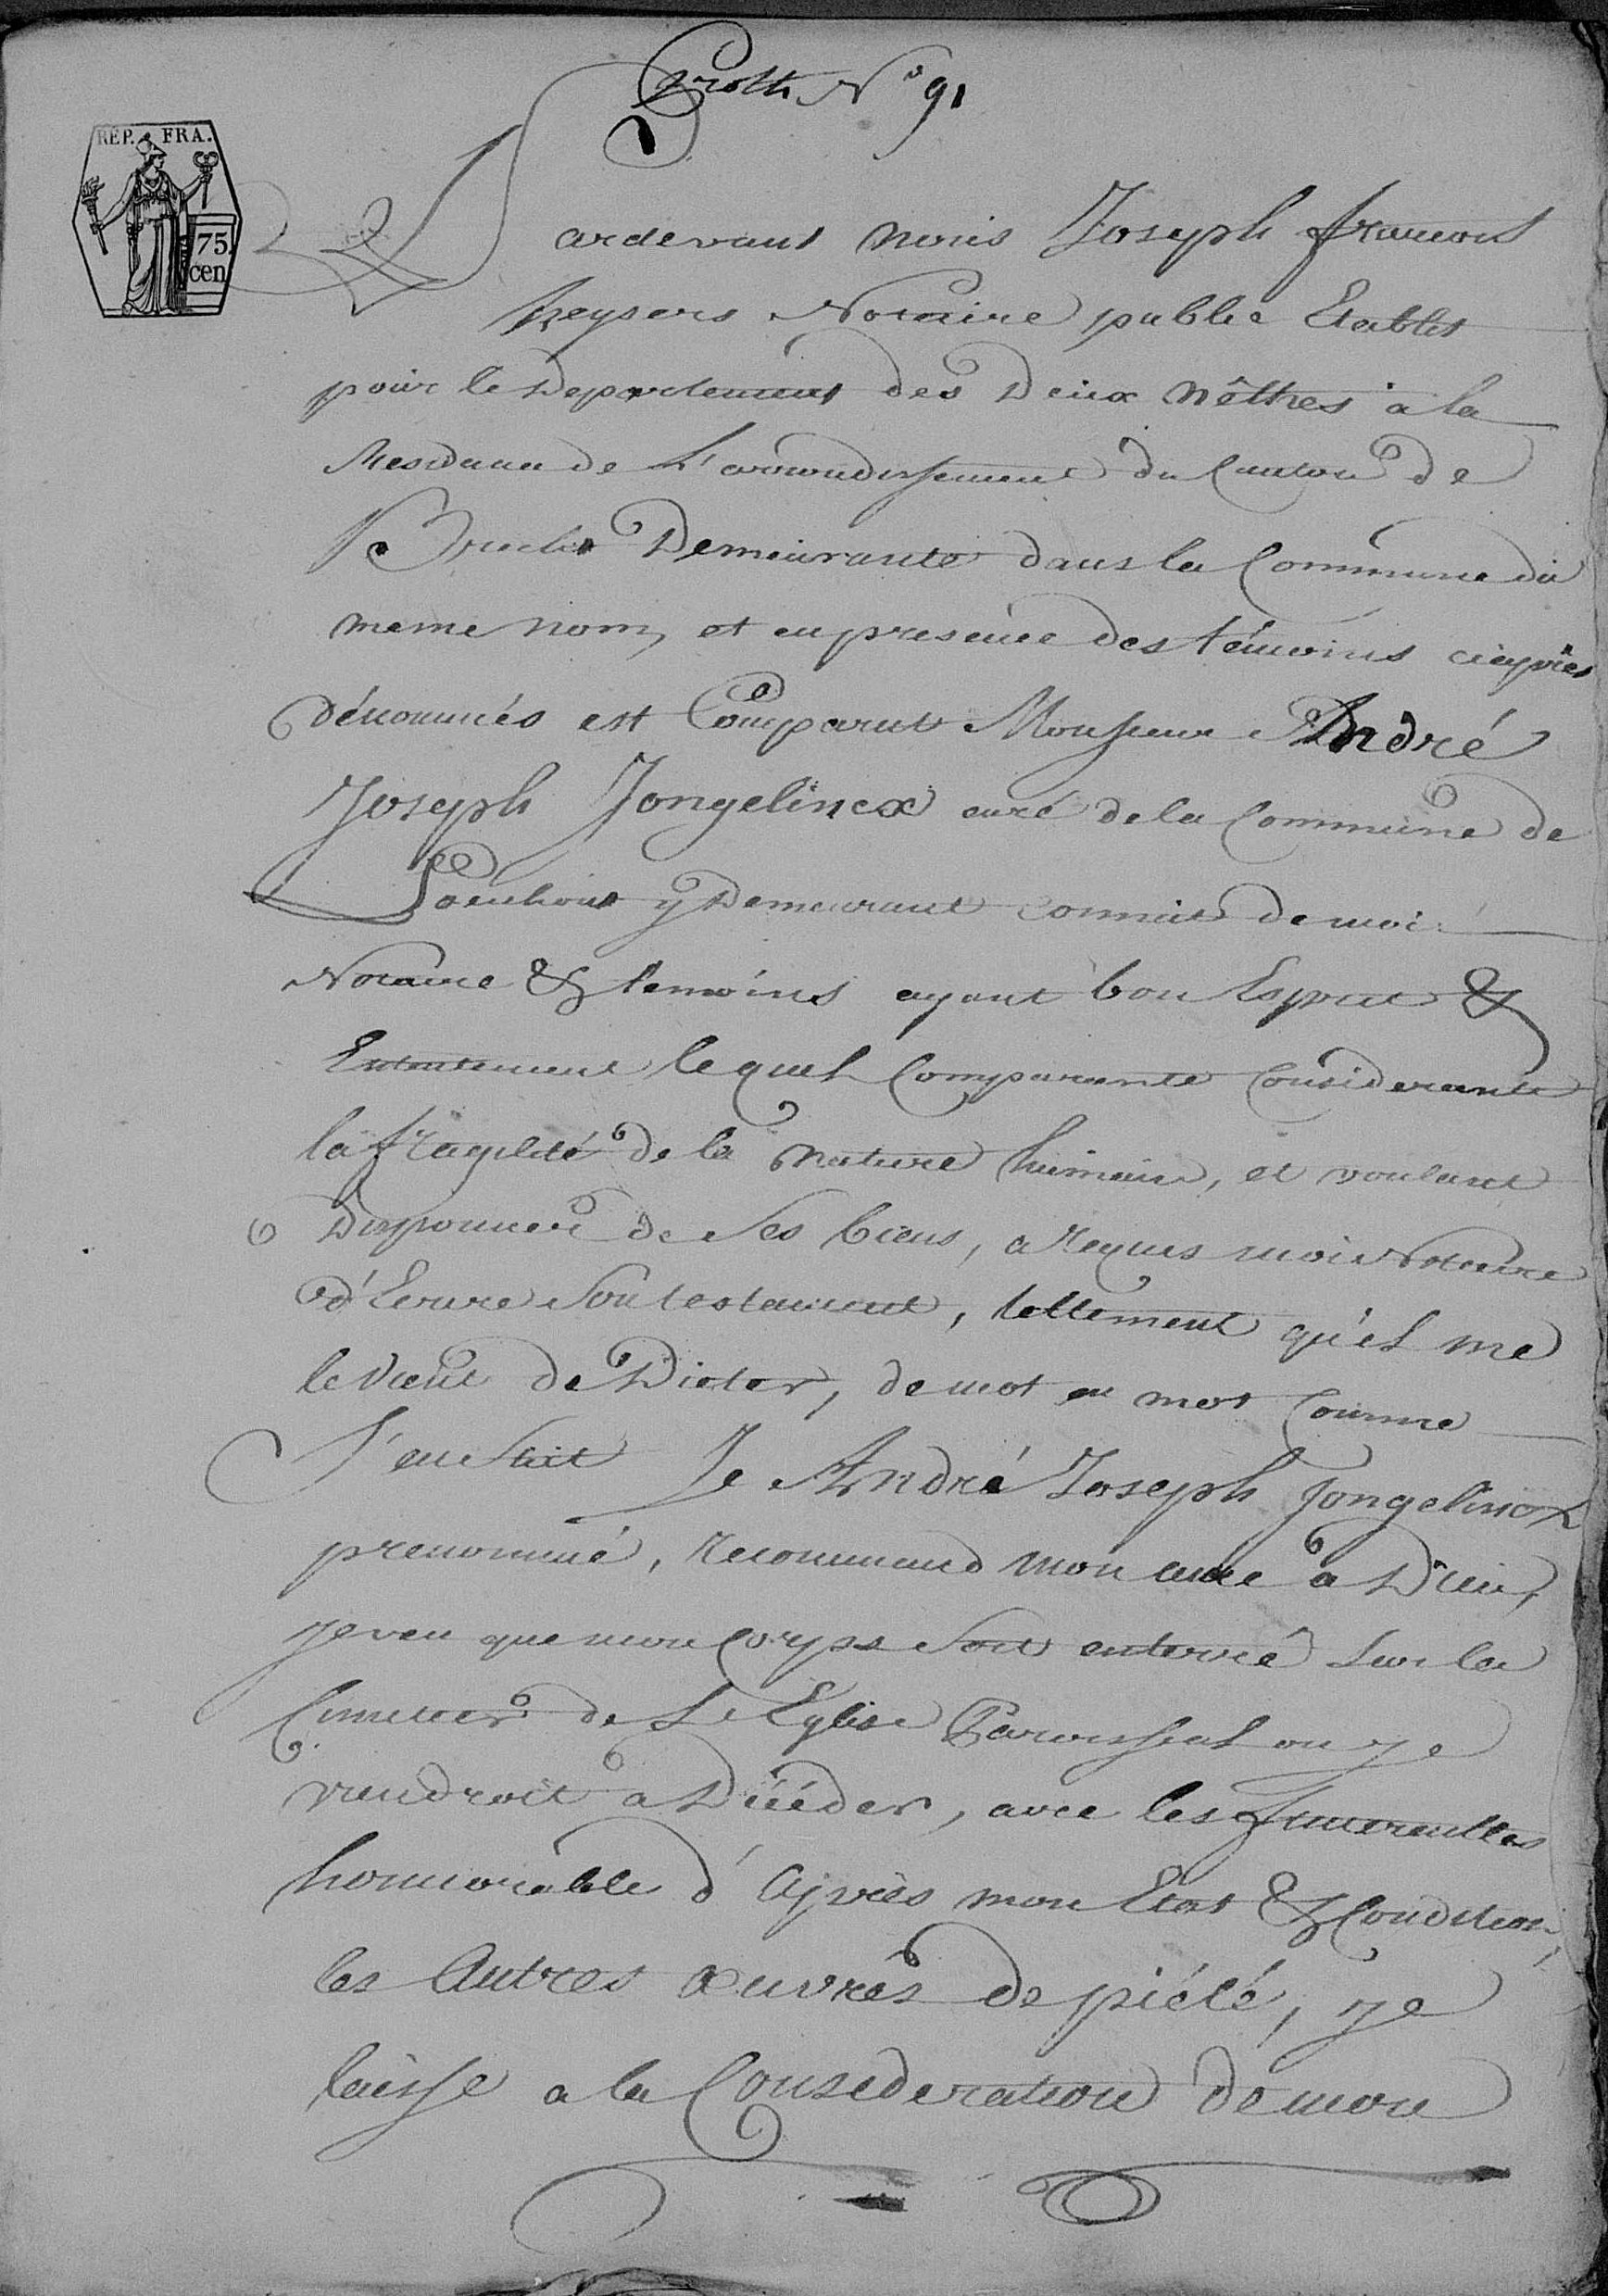 Proth. N° 91
REP. FRA.
75.
cen
Pardevant nous Joseph francois
heysers Notaire public Etablit
pour le Departement des Deux Nêthes à la
Residence de L'arrondissement du Canton de
Brecht Demeurante dans la Commune du
meme nom, et en presence des témoins ciaprès
dénommés est Comparut Monsieur André
Joseph Jongelincx curé de la Commune de
Loenhout y Demeurant connut de moi
Notaire & temoins ayant bon Esprit &
Entontement lequel Comparante Considerante
la fragilité de la nature humain, et voulant
Disponner de Ses biens, a requis moi Notaire
d'Ecrire Son testament, tellement qu'il me
le Vient de Dicter, de mot en mot Comme
S'en Suit Je André Joseph Jongelincx
prenommé, recommand mon ame a Dieu,
je veu que mon Corps Soit enterré Sur la
Cimetier de L'Eglise Paroissial ou je
viendroit a Décéder, avec les funerailles
honnorable d'Après mon Etat & Condition,
les Autres œuvrès de piété, je
laisse a la Consideration de mon